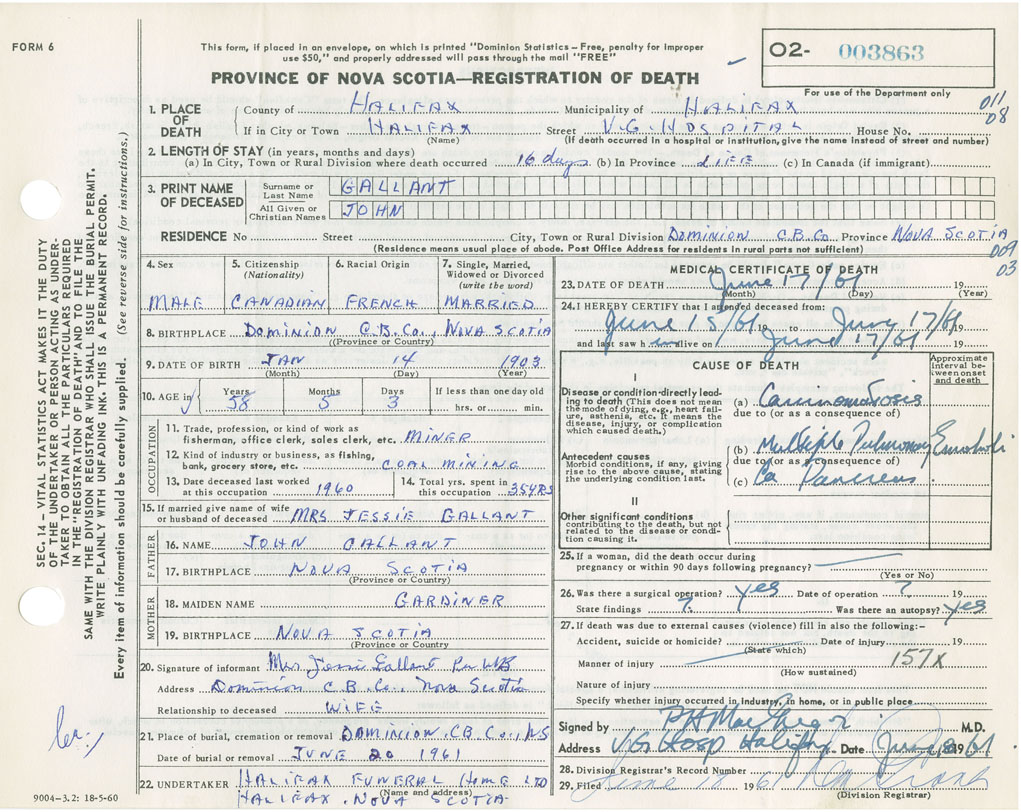 FORM 6
This form, if placed in an envelope, on which is printed "Dominion Statistics – Free, penalty for improper
use $50," and properly addressed will pass through the mail "FREE"
O2- 003863
For use of the Department only
PROVINCE OF NOVA SCOTIA—REGISTRATION OF DEATH
1. PLACE OF DEATH County of HALIFAX Municipality of HALIFAX 011
If in City or Town HALIFAX Street V.G. HOSPITAL House No. 08
(Name) (If death occurred in a hospital or institution, give the name instead of street and number)
2. LENGTH OF STAY (in years, months and days)
(a) In City, Town or Rural Division where death occurred 16 days (b) In Province LIFE (c) In Canada (if immigrant)
3. PRINT NAME OF DECEASED
Surname or Last Name GALLANT
All Given or Christian Names JOHN
RESIDENCE No. Street City, Town or Rural Division DOMINION C.B. Co. Province NOVA SCOTIA
(Residence means usual place of abode. Post Office Address for residents in rural parts not sufficient)
009
03
4. Sex 5. Citizenship (Nationality) 6. Racial Origin 7. Single, Married, Widowed or Divorced (write the word)
MALE CANADIAN FRENCH MARRIED
8. BIRTHPLACE DOMINION C.B. Co., NOVA SCOTIA
(Province or Country)
9. DATE OF BIRTH JAN 14 1903
(Month) (Day) (Year)
10. AGE in Years Months Days If less than one day old
58 5 3 hrs. or min.
OCCUPATION
11. Trade, profession, or kind of work as
fisherman, office clerk, sales clerk, etc. MINER
12. Kind of industry or business, as fishing,
bank, grocery store, etc. COAL MINING
13. Date deceased last worked at this occupation 1960
14. Total yrs. spent in this occupation 35 YRS
15. If married give name of wife
or husband of deceased MRS JESSIE GALLANT
FATHER
16. NAME JOHN GALLANT
17. BIRTHPLACE NOVA SCOTIA
(Province or Country)
MOTHER
18. MAIDEN NAME GARDINER
19. BIRTHPLACE NOVA SCOTIA
(Province or Country)
20. Signature of informant Mrs Jessie Gallant Per WB
Address Dominion C.B. Co., Nova Scotia
Relationship to deceased WIFE
21. Place of burial, cremation or removal DOMINION, C.B. Co., NS
Date of burial or removal JUNE 20 1961
22. UNDERTAKER HALIFAX FUNERAL HOME LTD
(Name and address)
HALIFAX, NOVA SCOTIA
MEDICAL CERTIFICATE OF DEATH
23. DATE OF DEATH June 17/61 19
(Month) (Day) (Year)
24. I HEREBY CERTIFY that I attended deceased from:
June 15/61 19 to June 17/61 19
and last saw him alive on June 17/61 19
CAUSE OF DEATH
Approximate interval between onset and death
I
Disease or condition directly leading to death (This does not mean the mode of dying, e.g., heart failure, asthenia, etc. It means the disease, injury, or complication which caused death.)
(a) Carcinomatosis
due to (or as a consequence of)
Antecedent causes
Morbid conditions, if any, giving rise to the above cause, stating the underlying condition last.
(b) Multiple Pulmonary Emboli
due to (or as a consequence of)
(c) Ca Pancreas
II
Other significant conditions
contributing to the death, but not related to the disease or condition causing it.
25. If a woman, did the death occur during
pregnancy or within 90 days following pregnancy?
(Yes or No)
26. Was there a surgical operation? yes Date of operation ? 19
State findings ? Was there an autopsy? yes
27. If death was due to external causes (violence) fill in also the following:-
Accident, suicide or homicide? Date of injury 19
(State which)
Manner of injury 157X
(How sustained)
Nature of injury
Specify whether injury occurred in industry, in home, or in public place
Signed by M.D.
Address V.G. Hosp Halifax Date June 1961
28. Division Registrar's Record Number
29. Filed June 1961
(Division Registrar)
SEC. 14 – VITAL STATISTICS ACT MAKES IT THE DUTY
OF THE UNDERTAKER OR PERSON ACTING AS UNDER-
TAKER TO OBTAIN ALL THE PARTICULARS REQUIRED
IN THE "REGISTRATION OF DEATH" AND TO FILE THE
SAME WITH THE DIVISION REGISTRAR WHO SHALL ISSUE THE BURIAL PERMIT.
WRITE PLAINLY WITH UNFADING INK. THIS IS A PERMANENT RECORD.
Every item of information should be carefully supplied. (See reverse side for instructions.)
9004-3.2: 18-5-60